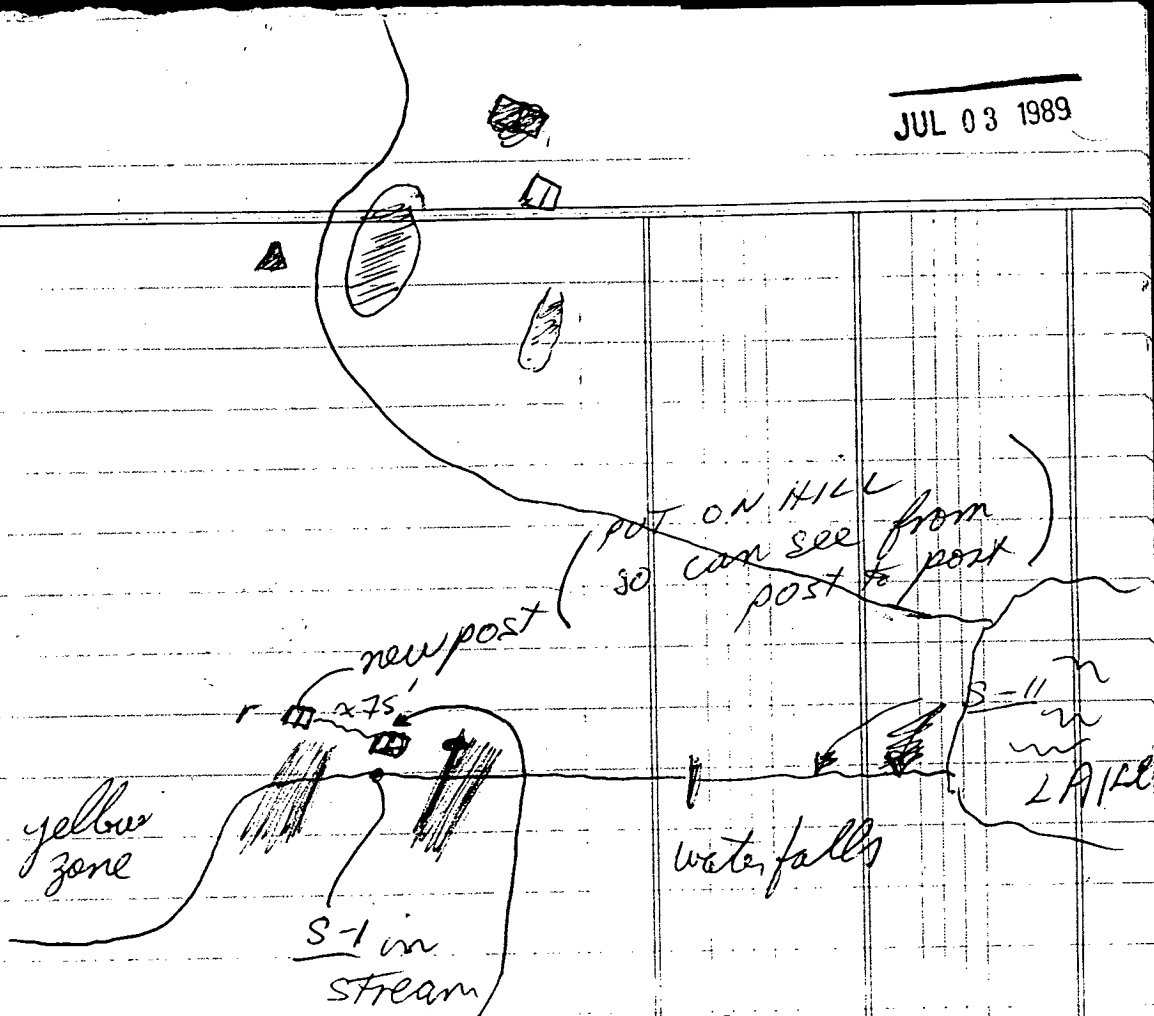 JUL 03 1989
PUT ON HILL
so can see from
post to post
new post
r ≈ 75'
S-11
LAKE
yellow
zone
waterfalls
S-1 in
stream